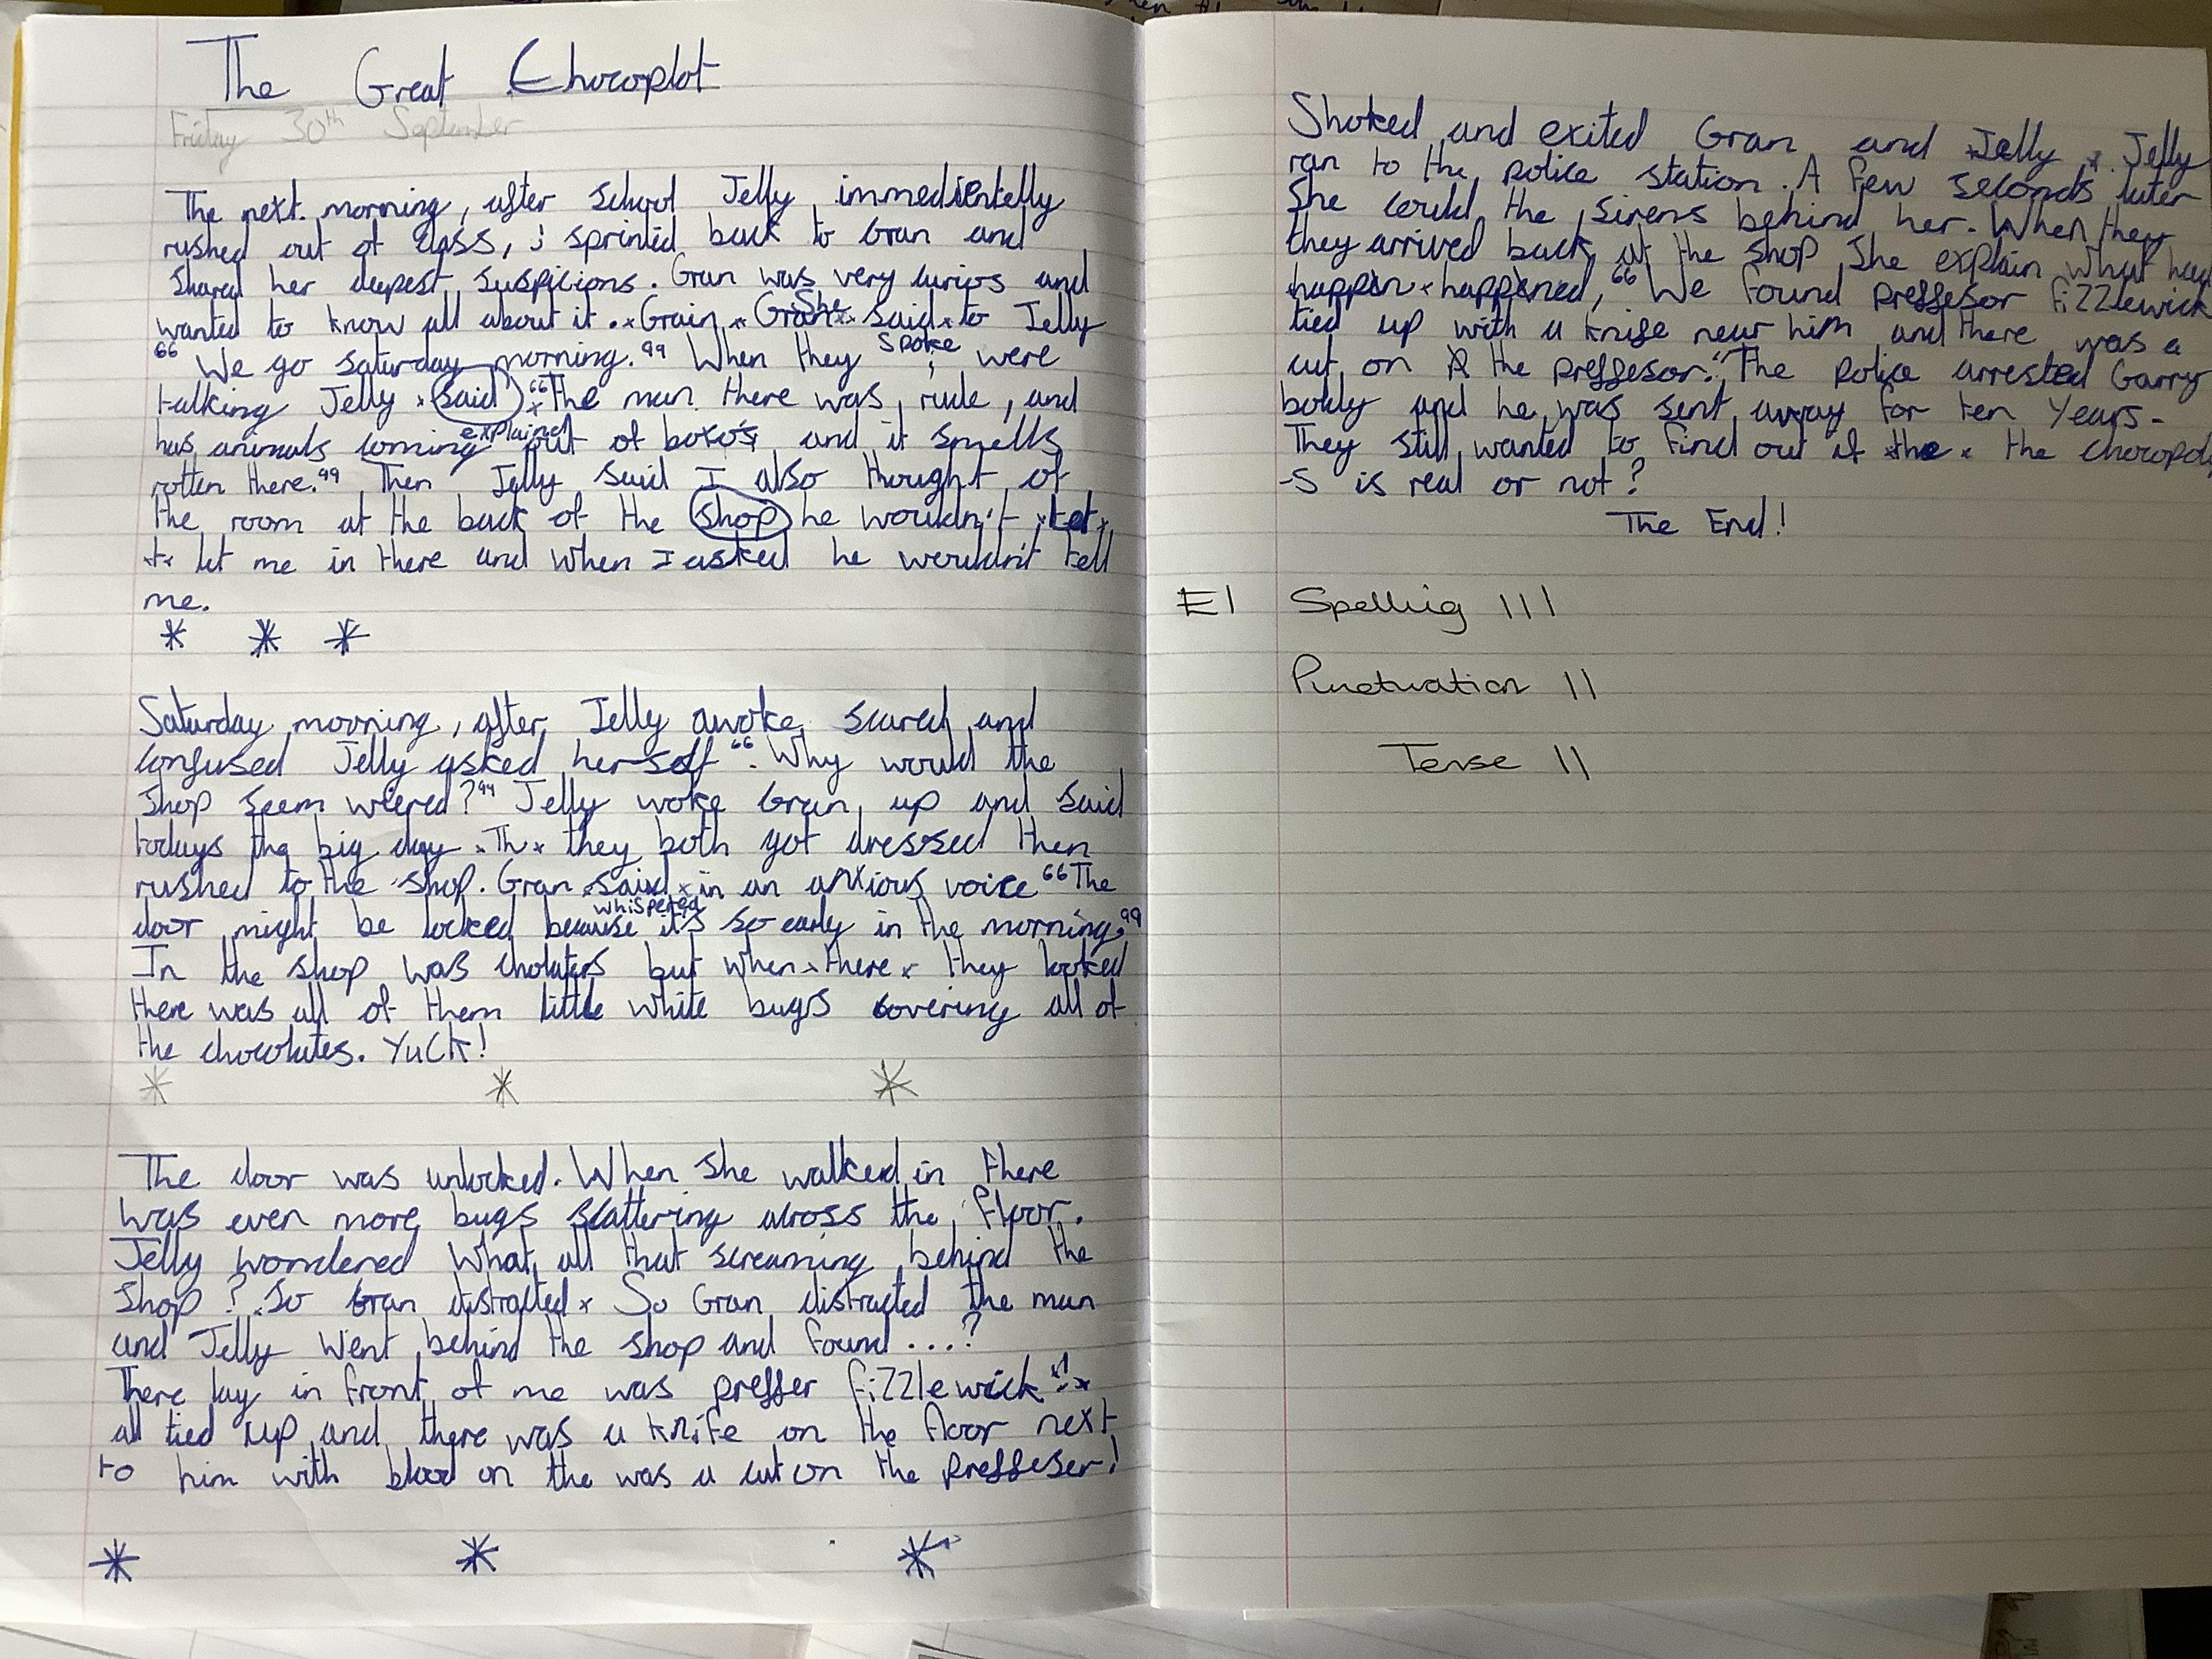 The Great Chocoplot
Friday 30th September
The next morning, after school Jelly immedientelly
rushed out of class, sprinted back to Gran and
shared her deepest suspicions. Gran was very curiors and
wanted to know all about it. Grain Gran She said to Jelly
"We go saturday morning." When they spoke were
talking Jelly said explained "The man there was rude, and
has animals coming out of boxes and it smells
rotten there." Then Jelly said I also thought of
the room at the back of the shop he wouldn't let
to let me in there and when I asked he wouldn't tell
me.
* * *
Saturday mooning, after Jelly awoke scared and
confused Jelly asked herself "Why would the
shop seem wiered?" Jelly woke Gran up and said
todays the big day Th they both got dressed then
rushed to the shop. Gran said whispered in an anxious voice "The
door might be locked because it's so early in the morning."
In the shop was cholaters but when there they looked
there was all of them little white bugs covering all of
the chocolates. YUCK!
* * *
The door was unlocked. When she walked in there
was even more bugs scattering across the floor.
Jelly wondered what all that screaming behind the
shop? So Gran distracted So Gran distracted the man
and Jelly went behind the shop and found ...?
There lay in front of me was preffer fizzlewick!
all tied up and there was a knife on the floor next
to him with blood on the was a cut on the preffeser!
* * *
Shoked and exited Gran and Jelly Jelly
ran to the police station. A few seconds later
she could the sirens behind her. When they
they arrived back at the shop she explain what had
happin happened, "We found preffesor fizzlewick
tied up with a knife near him and there was a
cut on the preffesor." The police arrested Garry
bolly and he was sent away for ten years.
They still wanted to find out if the the chocopoly
-s is real or not?
The End!
E1 Spelling III
Punctuation II
Tense II